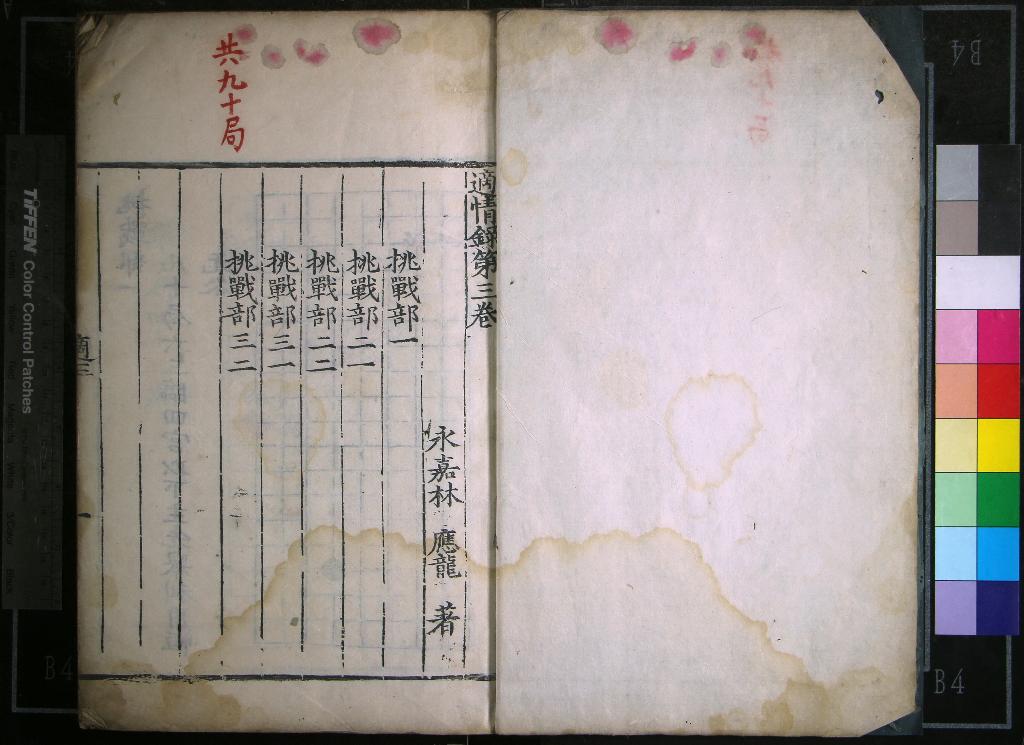 共九十局
適情錄第三卷
永嘉林 應龍 著
挑戰部一
挑戰部二一
挑戰部二二
挑戰部三一
挑戰部三二
適三
TIFFEN Color Control Patches
B4
B4
B4